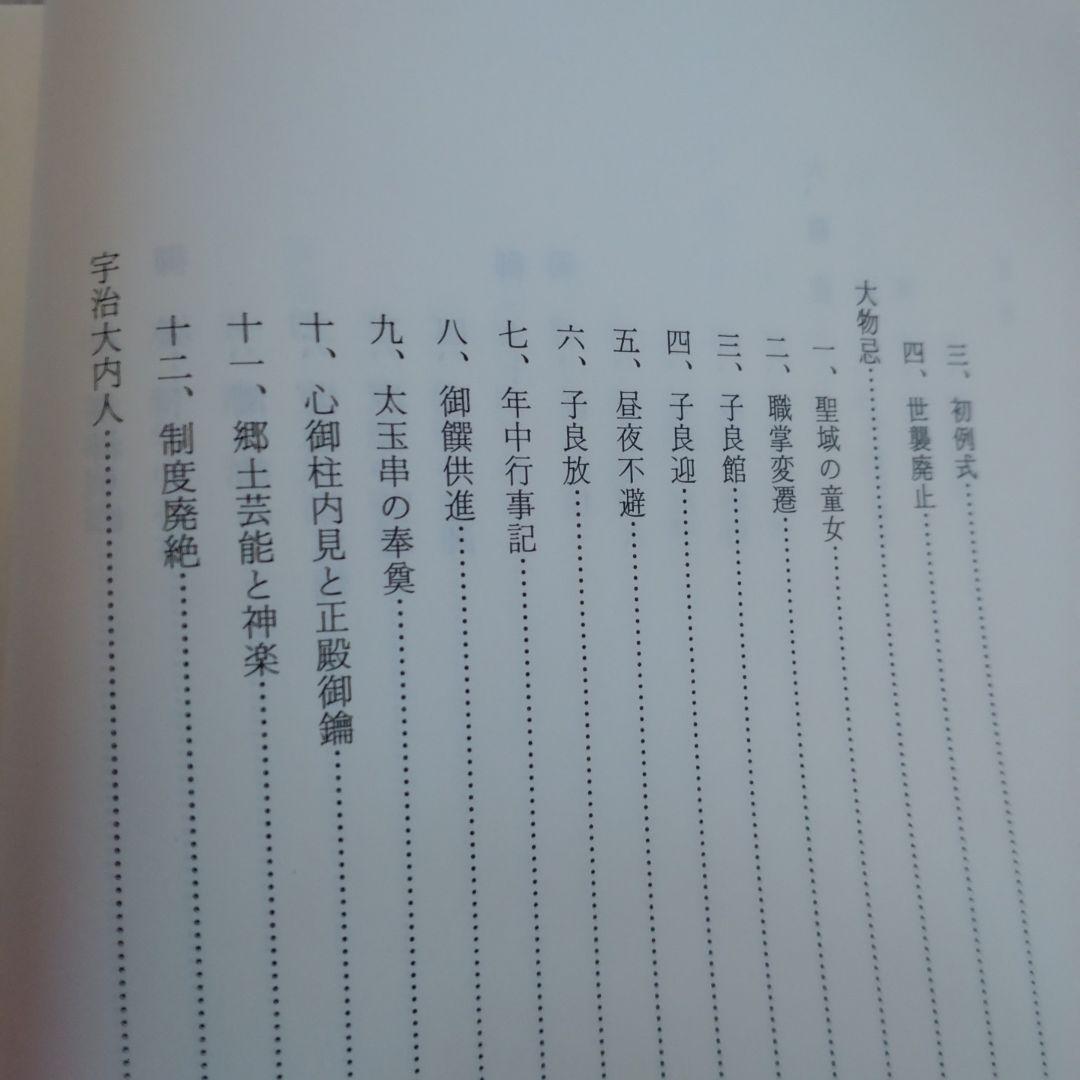 三、初例式
四、世襲廃止
大物忌
一、聖域の童女
二、職掌変遷
三、子良館
四、子良迎
五、昼夜不避
六、子良放
七、年中行事記
八、御饌供進
九、太玉串の奉奠
十、心御柱内見と正殿御鑰
十一、郷土芸能と神楽
十二、制度廃絶
宇治大内人